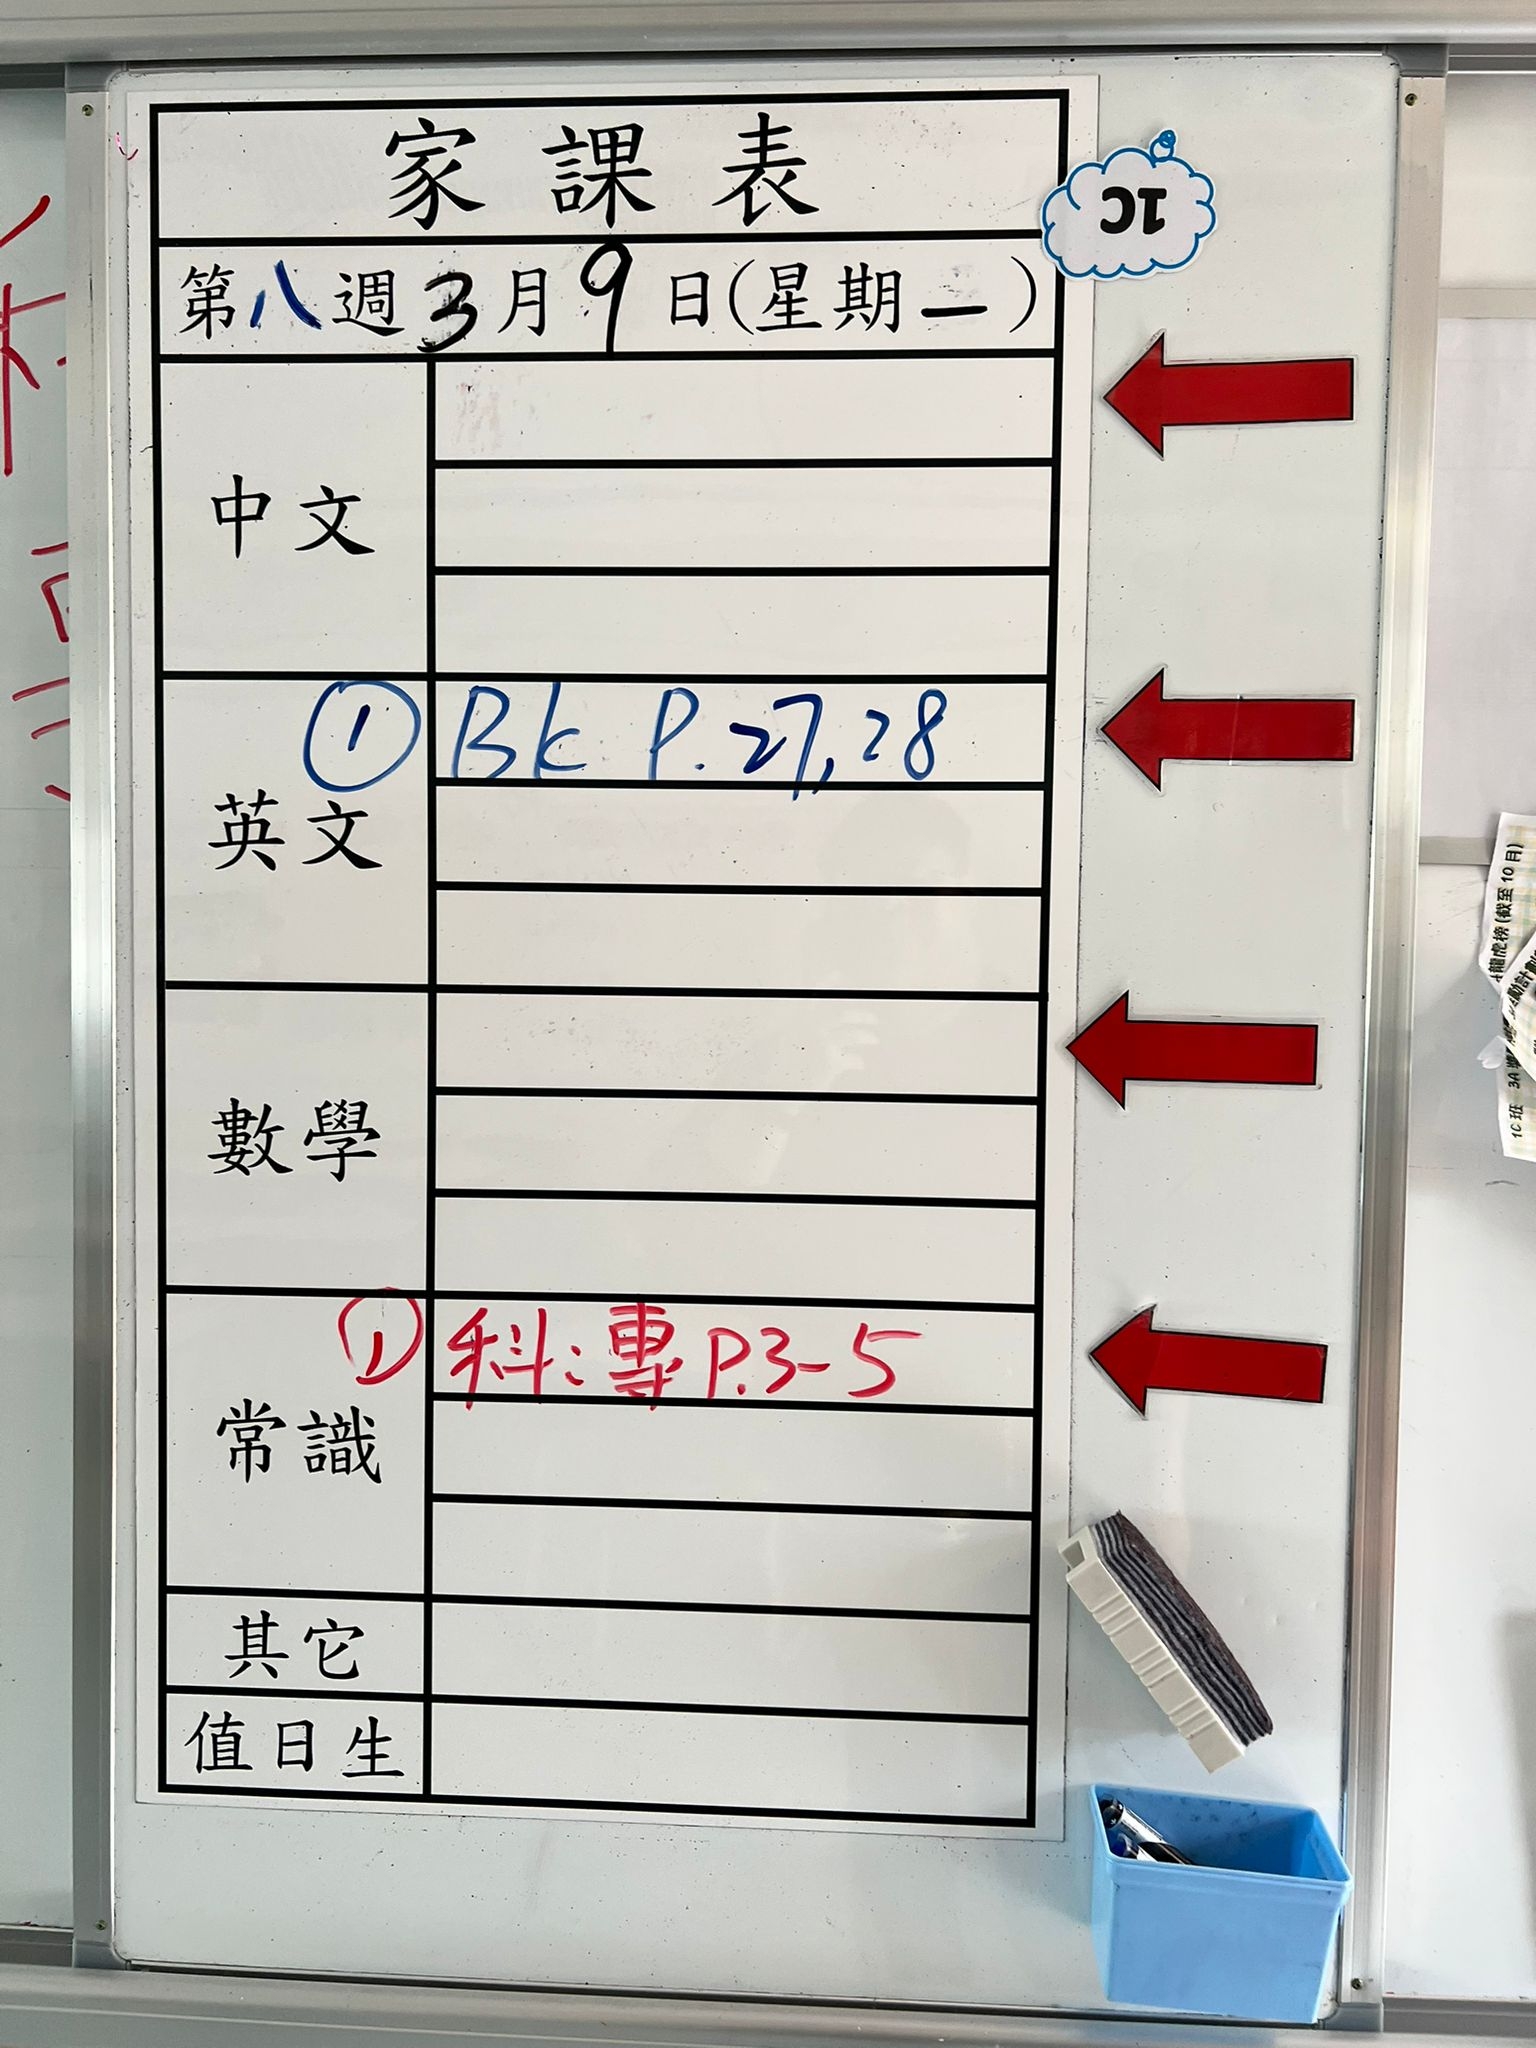 家課表
1C
第八週3月9日(星期一)
中文
英文
① Bk P.27,28
數學
常識
① 科:專 P.3-5
其它
值日生
龍虎榜(截至10月)
1C班 3A